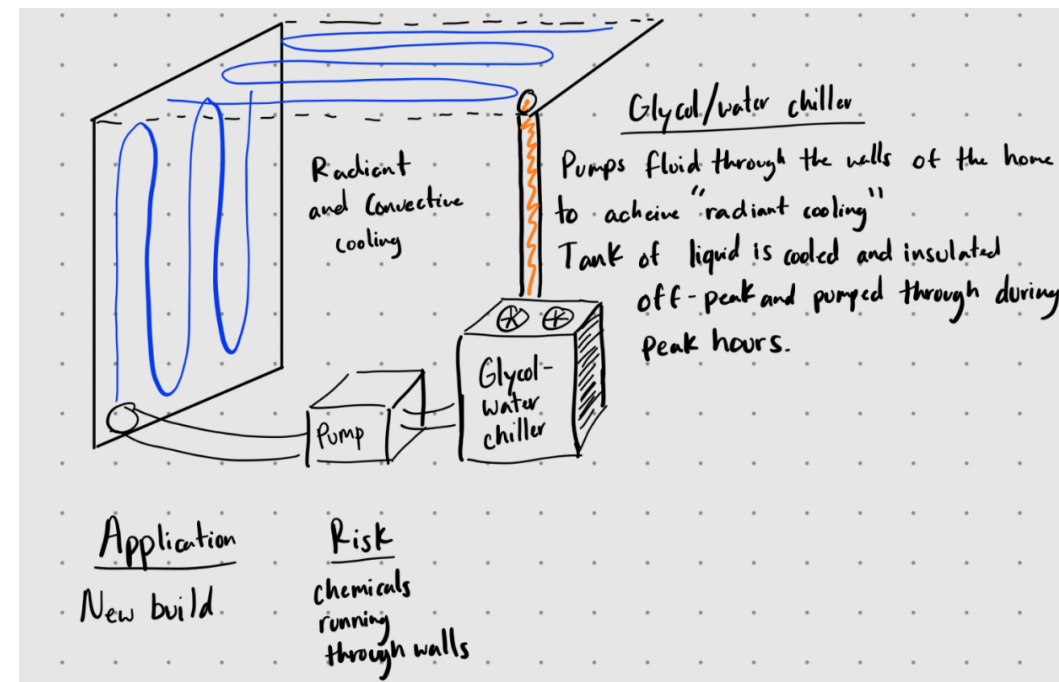 Glycol/water chiller
Pumps fluid through the walls of the home
to acheive "radiant cooling"
Tank of liquid is cooled and insulated
off-peak and pumped through during
peak hours.
Radiant
and Convective
cooling
Glycol-
water
chiller
Pump
Application
New build
Risk
chemicals
running
through walls